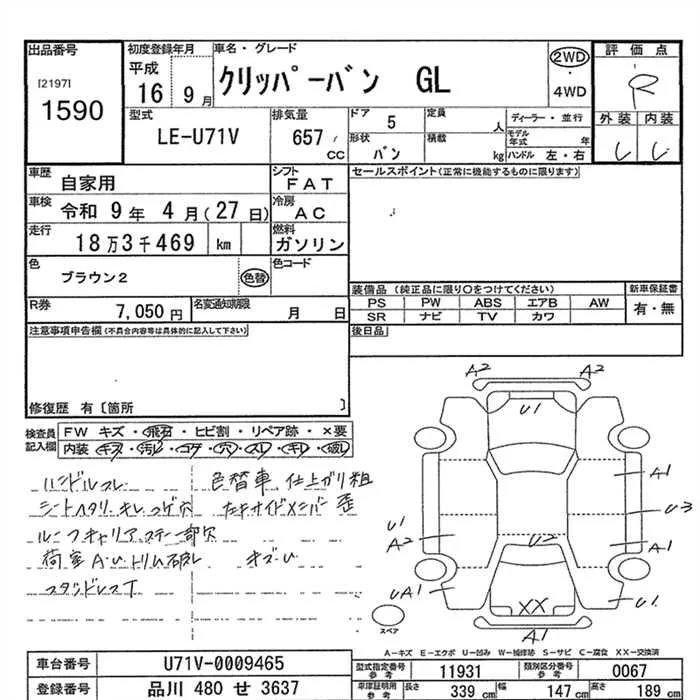 出品番号
[2197]
1590
初度登録年月
平成
16 9月
車名・グレード
クリッパーバン GL
2WD
・
4WD
評価点
R
外装 内装
型式
LE-U71V
排気量
657
CC
ドア 5
形状 バン
定員 人
積載 kg
ディーラー・並行
モデル年式 年
ハンドル 左・右
車歴 自家用
シフト FAT
車検 令和 9年 4月(27日)
冷房 AC
走行 18万3千469 km
燃料 ガソリン
色 ブラウン2 色替
色コード
R券 7,050円
名変通知期限 月 日
セールスポイント(正常に機能するものに限ります)
装備品(純正品に限り○をつけてください)
新車保証書
PS PW ABS エアB AW
SR ナビ TV カワ
有・無
後日品
注意事項申告欄(不具合内容等は具体的に記入して下さい)
修復歴 有〔箇所 〕
検査員記入欄
FW キズ・飛石・ヒビ割・リペア跡・×要
内装 キズ・汚レ・コゲ・穴・スレ・キレ・破レ
ハンドルスレ
シートヘタリ キレ コゲ穴
ルーフキャリア ステー一部欠
荷室 A・U トリム破レ
スタッドレスT
色替車 仕上ガリ粗
右サイドメンバー 歪
キズ・U
A2 A2
U1
A1
U1
U3
A2
U2
A1
UA1
XX
U1
A1
スペア
A－キズ E－エクボ U－凹み W－補修跡 S－サビ C－腐食 XX－交換済
車台番号 U71V-0009465
登録番号 品川 480 せ 3637
型式指定番号 参考 11931
類別区分番号 参考 0067
車庫証明用 参考 長さ 339 cm 幅 147 cm 高さ 189 cm